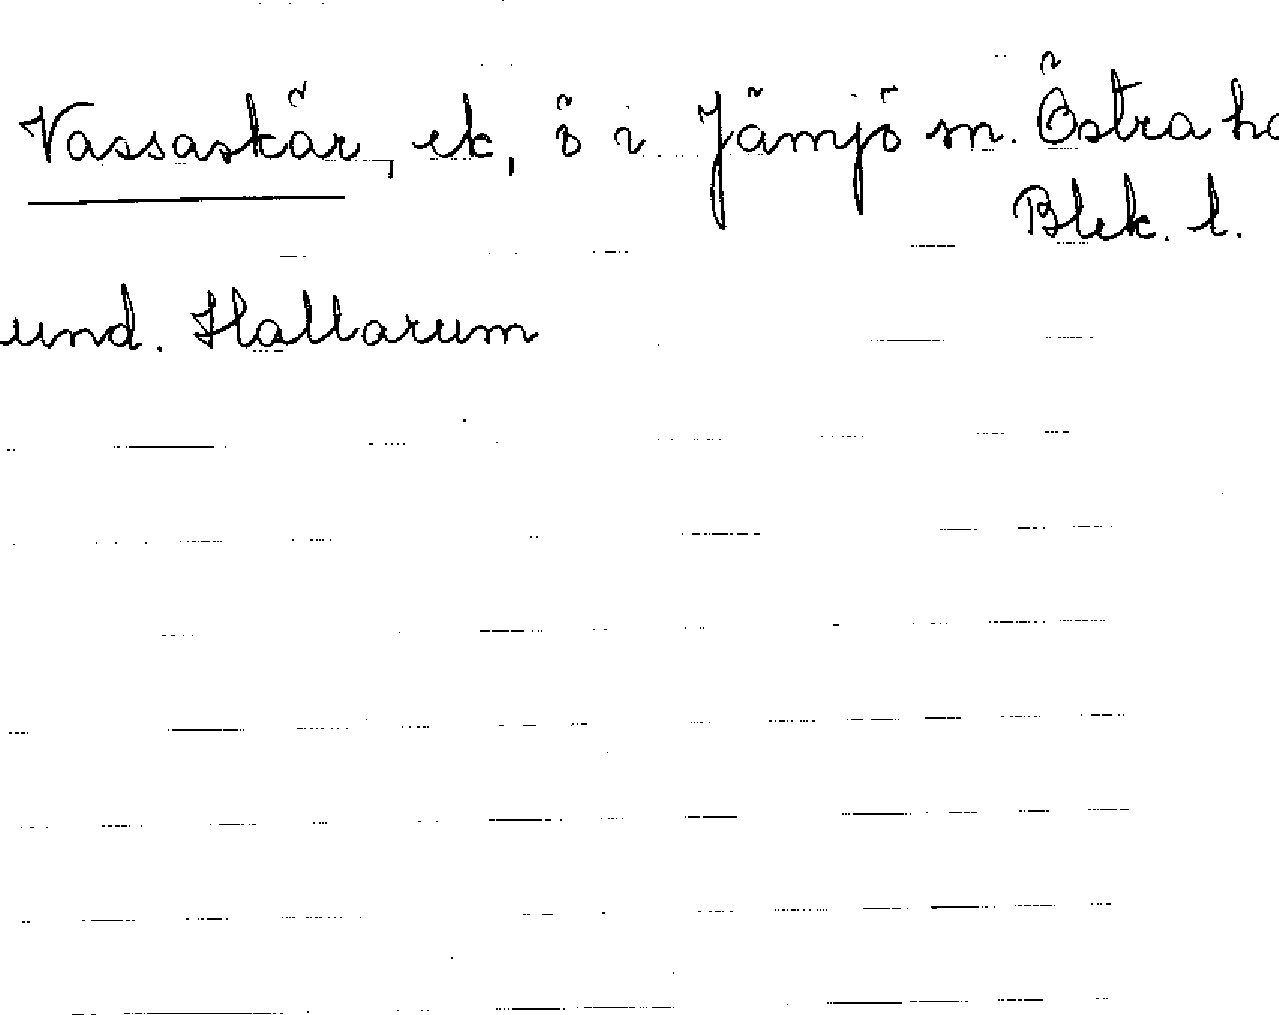 Vassaskär, ek, ö i Jämjö sn. Östra ha
Blek. l.
und. Hallarum